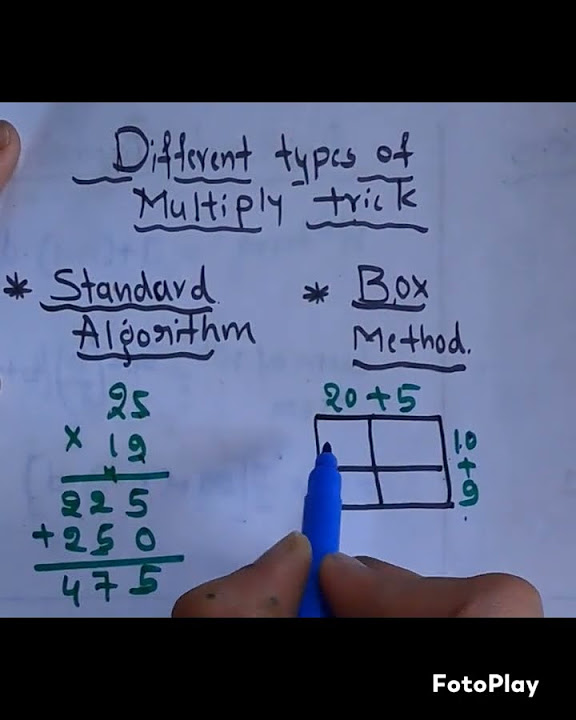 Different types of
Multiply trick
* Standard
Algorithm
25
x 19
225
+250
475
* Box
Method.
20+5
10
+
9
FotoPlay